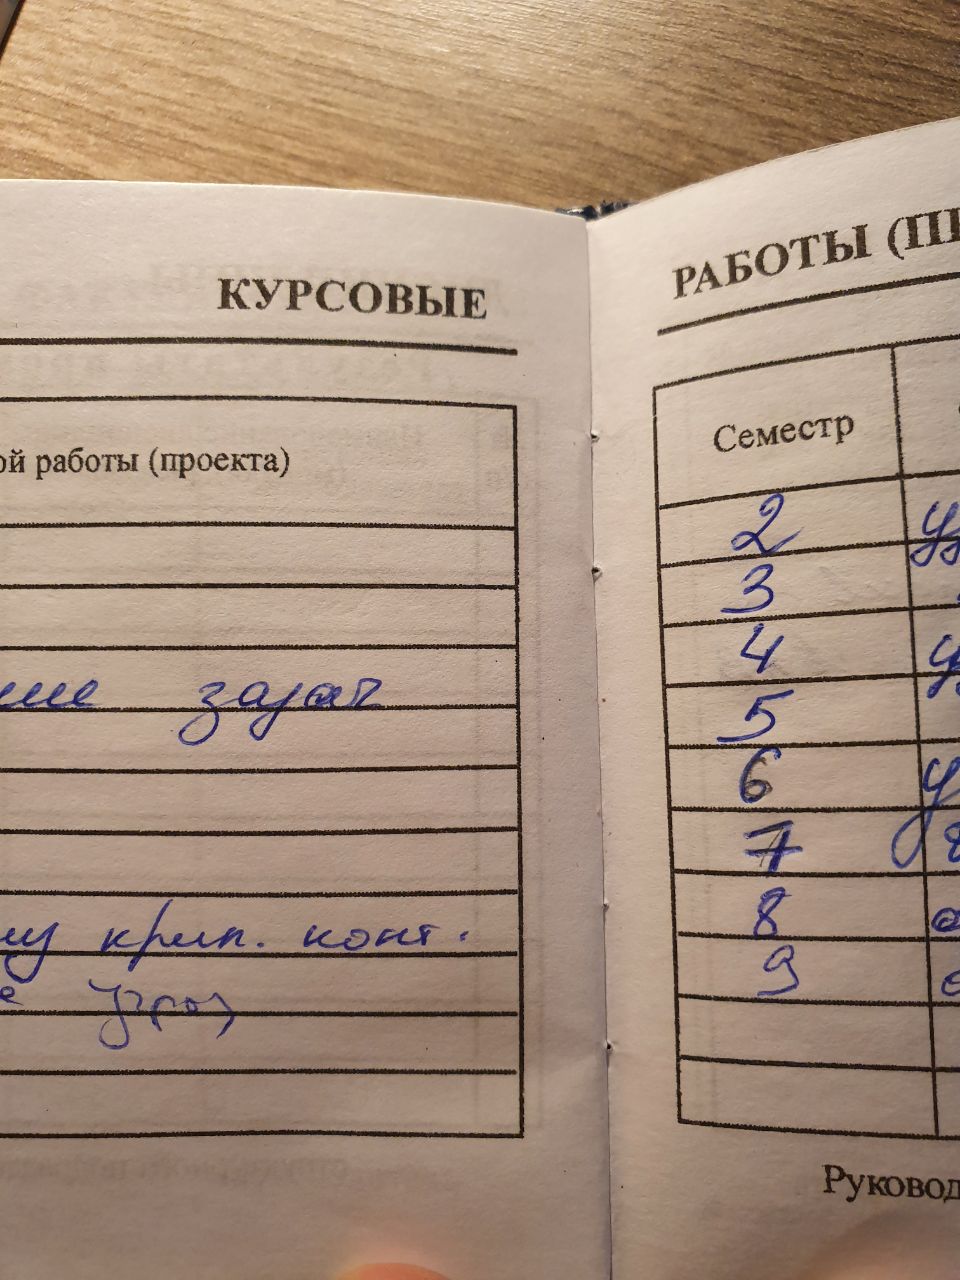 КУРСОВЫЕ
ой работы (проекта)
ние задач
му крип. конт.
е угроз
РАБОТЫ (ПР
Семестр
2
3
4
5
6
7
8
9
Руковод